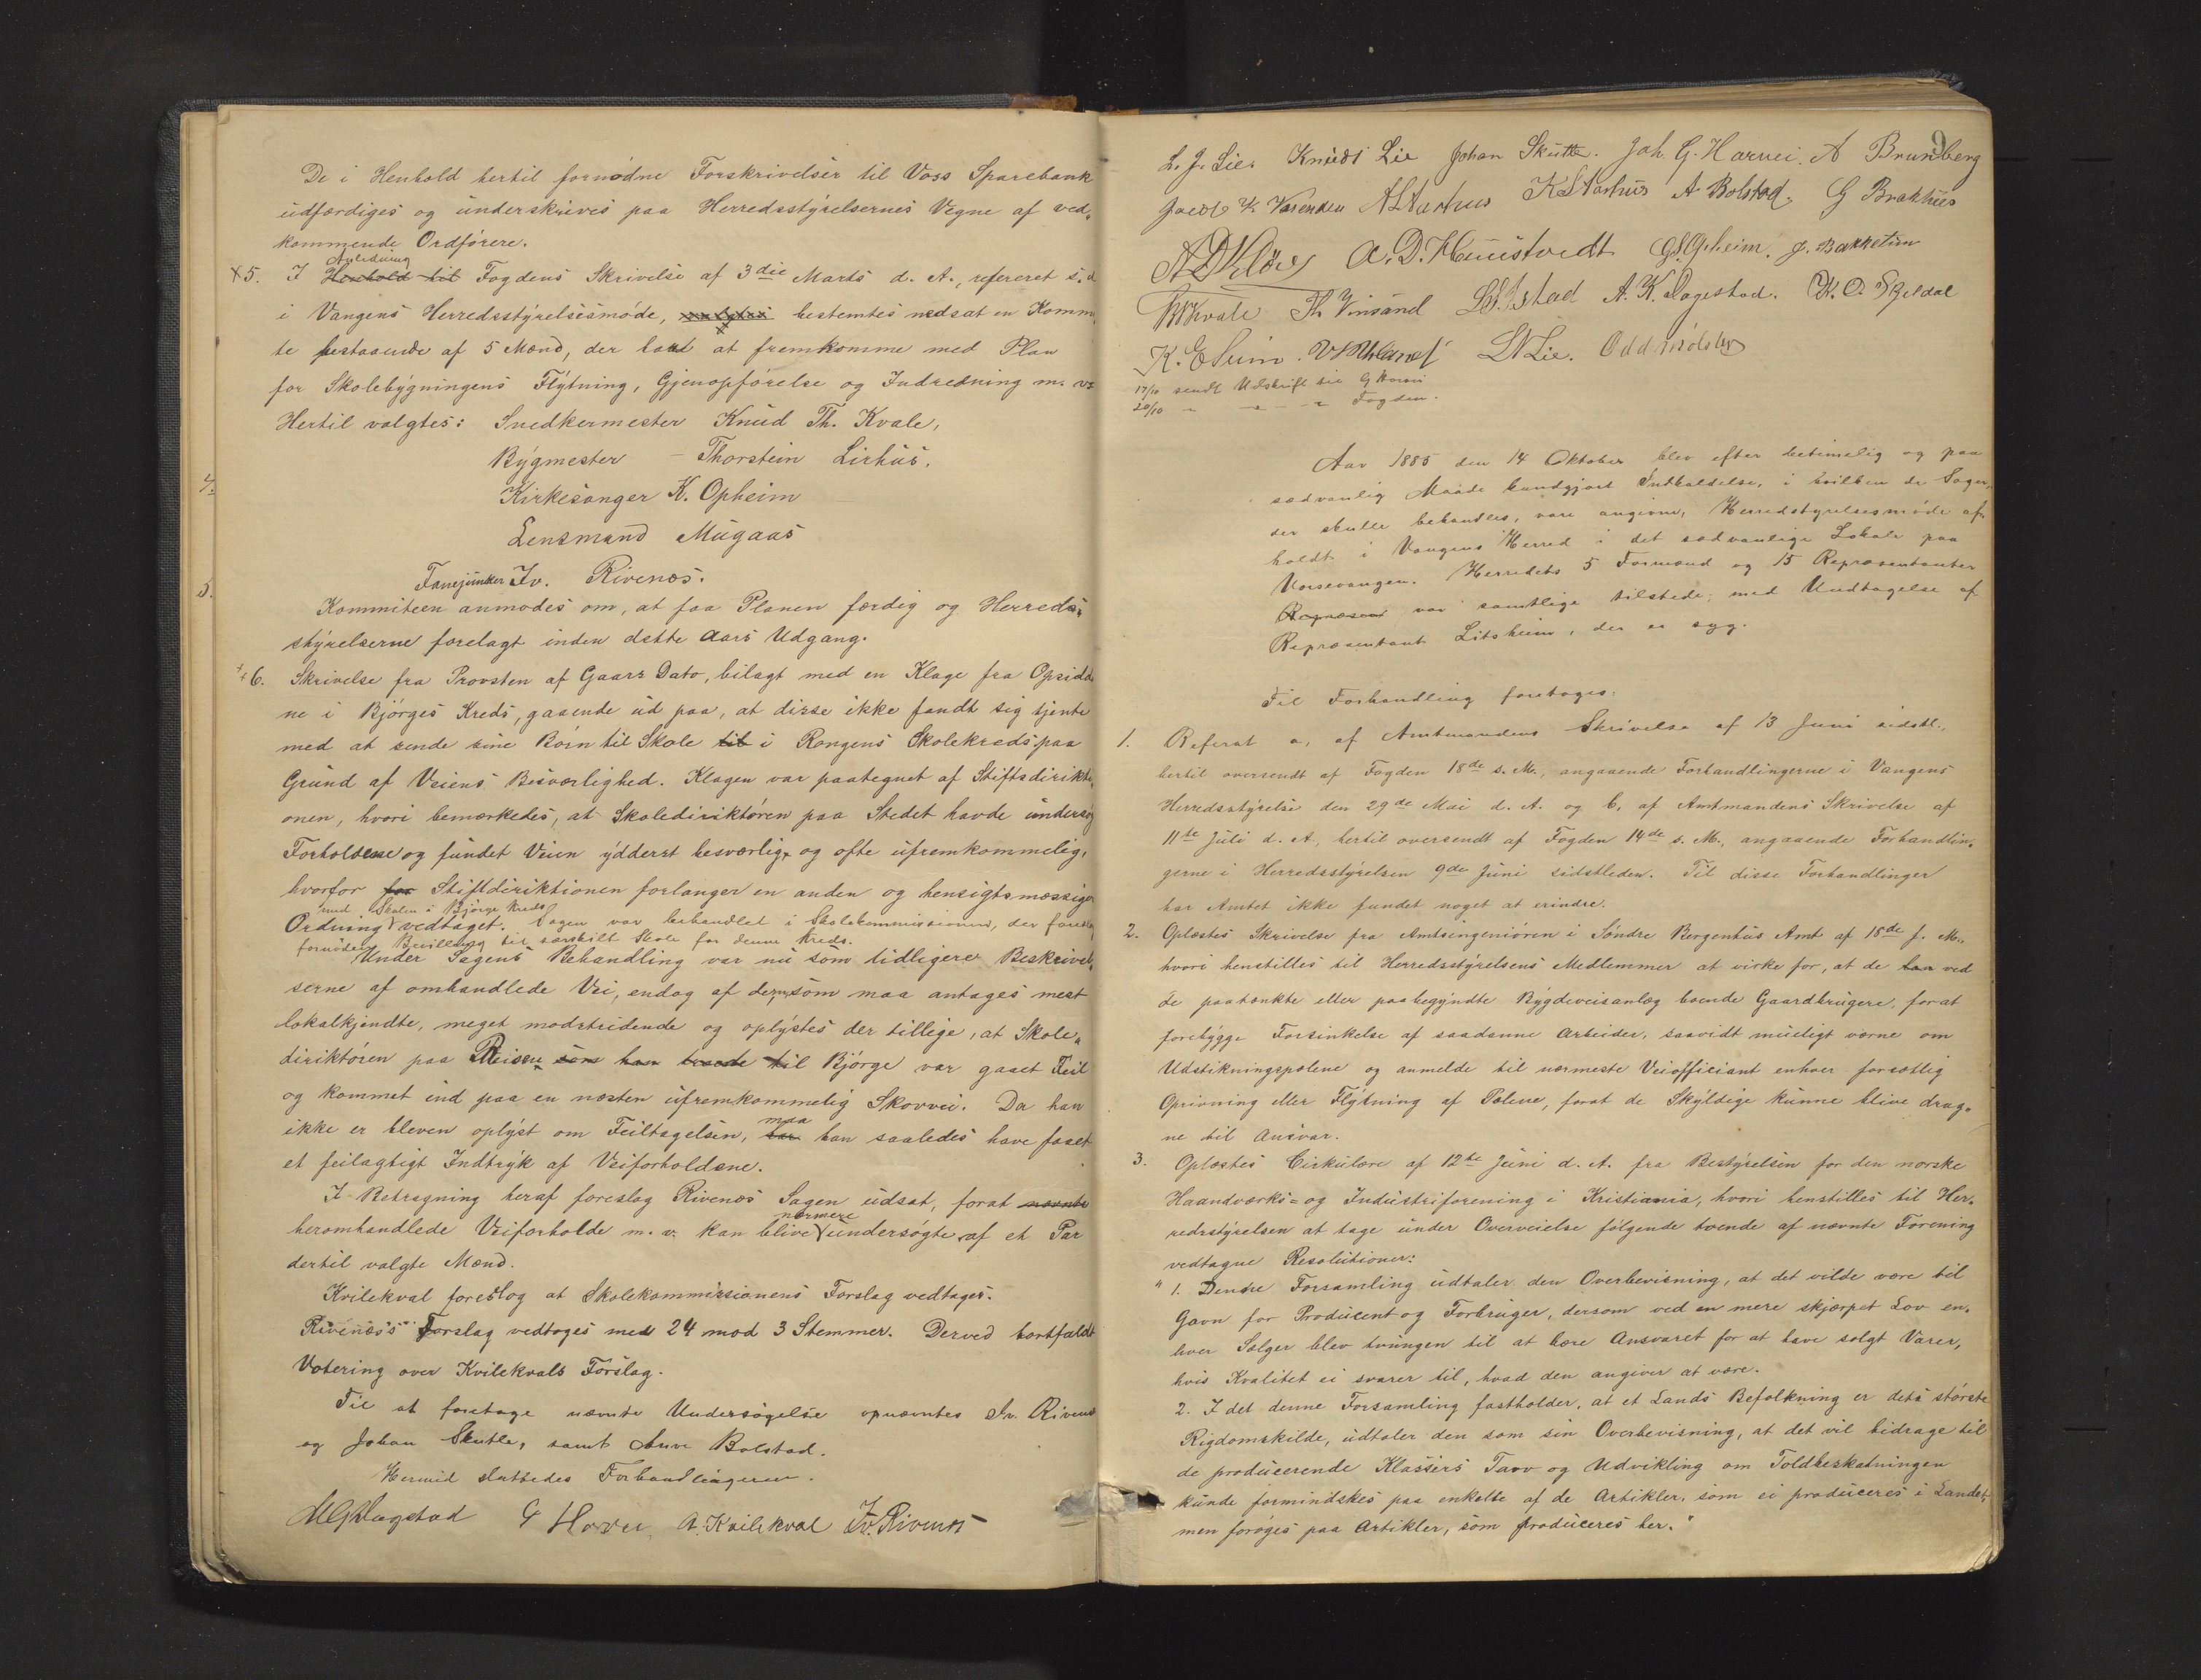 De i Henhold hertil fornødne Forskrivelser til Voss Sparebank
udfærdiges og underskrives paa Herredsstyrelsernes Vegne af ved„
kommende Ordførere.
Anledning
×5. I Henhold til Fogdens Skrivelse af 3die Marts d. A., refereret s. d
i Vangens Herredsstyrelsesmøde, valgtes bestemtes nedsat en Komm
te bestaaende af 5 Mænd, der havd at fremkomme med Plan
for Skolebygningens Flytning, Gjenopførelse og Indredning m. v.
Hertil valgtes: Snedkermester Knud Th. Kvale,
Bygmester – Thorstein Lirhus.
4.
Kirkesanger K. Opheim
Lensmand Mugaas
5.
Fanejunker Iv. Rivenæs.
Kommiteen anmodes om, at faa Planen færdig og Herreds„
styrelserne forelagt inden dette Aars Udgang.
×6. Skrivelse fra Provsten af Gaars Dato, bilagt med en Klage fra Opsidd
ne i Bjørges Kreds, gaaende ud paa, at disse ikke fandt sig tjente
med at sende sine Børn til Skole til i Rongens Skolekreds paa
Grund af Veiens Besværlighed. Klagen var paategnet af Stiftsdirikti
onen, hvori bemærkedes, at Skoledirektøren paa Stedet havde undersøg
Forholdene og fundet Veien ydderst besværlig, og ofte ufremkommelig,
hvorfor for Stiftdiriktionen forlanger en anden og hensigtsmæssiger
med Skolen i Bjørge Kreds
Ordning vedtaget. Sagen var behandlet i Skolekommissionen, der foreslog
fornøden Bevilling til særskilt Skole for denne Kreds.
Under Sagens Behandling var nu som tidligere Beskrivel„
serne af omhandlede Vei, endog af dem, som maa antages mest
lokalkjendte, meget modstridende og oplystes der tillige, at Skole„
diriktøren paa Reisen som han havde til Bjørge var gaaet Feil
og kommet ind paa en næsten ufremkommelig Skovvei. Da han
maa
ikke er bleven oplyst om Feiltagelsen, har han saaledes have faaet
et feilagtigt Indtryk af Veiforholdene.
I Betragning heraf foreslog Rivenæs Sagen udsat, forat nævnte
nærmere
heromhandlede Veiforholde m. v. kan blive undersøgte af et Par
dertil valgte Mænd.
Kvilekval foreslog at Skolekommissionens Forslag vedtages.
Rivenæs's Forslag vedtoges med 24 mod 3 Stemmer. Derved bortfaldt
Votering over Kvilekvals Forslag.
Til at foretage nævnte Undersøgelse opnævntes Iv. Rivenæs
og Johan Skutle, samt Anve Bolstad.
Hermed sluttedes Forhandlingerne.
Dagestad G Horvei A. Kvilekval Iv. Rivenæs
9
L. J. Lie. Knudt Lie Johan Skutle. Joh. G. Horvei. A Brunborg
A Aarhus K Aarhus A Bolstad. G Brakhus
A. D. Hunistvedt G. Opheim. J. Bakketun
Kvale Th Vinsand A. K. Dagestad. K. O. Skjeldal
N Lie. Odd Mølster
17/10 sendt Udskrift til G Horvei
20/10 „ – „ – „ Fogden.
Aar 1885 den 14 Oktober blev efter betimelig og paa
sædvanlig Maade kundgjort Indkaldelse, i hvilken de Sager,
der skulle behandles, vare angivne, Herredstyrelsesmøde af„
holdt i Vangens Herred i det sædvanlige Lokale paa
Vossevangen. Herredets 5 Formænd og 15 Repræsentanter
Repræsen var samtlige tilstede, med Undtagelse af
Repræsentant Litsheim, der er syg.
Til Forhandling foretoges:
1. Referat a, af Amtmandens Skrivelse af 13 Juni sidstl.,
hertil oversendt af Fogden 18de s. M., angaaende Forhandlingerne i Vangens
Herredsstyrelse den 29de Mai d. A. og b, af Amtmandens Skrivelse af
11te Juli d. A, hertil oversendt af Fogden 14de s. M., angaaende Forhandlin„
gerne i Herredsstyrelsen 9de Juni sidstleden. Til disse Forhandlinger
har Amtet ikke fundet noget at erindre.
2. Oplæstes Skrivelse fra Amtsingeniøren i Søndre Bergenhus Amt af 18de f. M.,
hvori henstilles til Herredsstyrelsens Medlemmer at virke for, at de har ved
de paatænkte eller paabegyndte Bygdeveisanlæg boende Gaardbrugere, forat
forebygge Forsinkelse af saadanne Arbeider, saavidt mueligt værne om
Udstikningspælene og anmelde til nærmeste Veiofficiant enhver forsætlig
Oprivning eller Flytning af Pælene, forat de Skyldige kunne blive drag„
ne til Ansvar.
3. Oplæstes Cirkulære af 12te Juni d. A. fra Bestyrelsen for den norske
Haandværks= og Industriforening i Kristiania, hvori henstilles til Her„
redsstyrelsen at tage under Overveielse følgende tvende af nævnte Forening
vedtagne Resolutioner:
" 1. Denne Forsamling udtaler den Overbevisning, at det vilde være til
Gavn for Producent og Forbruger, dersom ved en mere skjærpet Lov en„
hver Sælger blev tvungen til at bære Ansvaret for at have solgt Varer,
hvis Kvalitet ei svarer til, hvad den angiver at være.
2. I det denne Forsamling fastholder, at et Lands Befolkning er dets største
Rigdomskilde, udtaler den som sin Overbevisning, at det vil bidrage til
de producerende Klassers Tarv og Udvikling om Toldbeskatningen
kunde formindskes paa enkelte af de Artikler, som ei produceres i Landet,
men forøges paa Artikler, som produceres her."